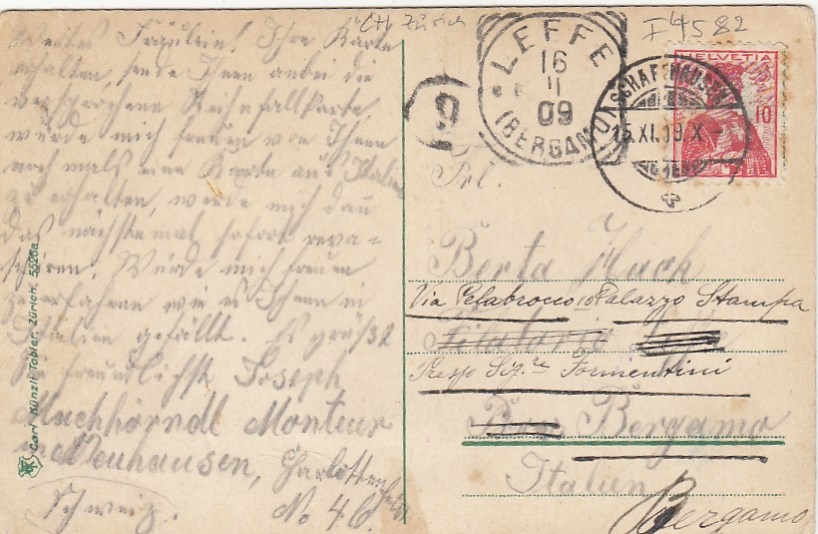 Wertes Fräulein! Ihre Karte
erhalten, sende Ihnen anbei die
versprochene Rheinfallkarte,
würde mich freuen von Ihnen
nochmals eine Karte aus Italien
zu erhalten, werde mich dan
das nächstemal sofort revan-
schiren. Würde mich freuen
zu erfahren wie es Ihnen in
Italien gefällt. Es grüßt
Sie freundlichst Joseph
Muchhörndl Monteur
in Neuhausen, Charlottenfels
Schweiz. No 46.
Carl Künzli-Tobler, Zürich. 5626a
CH Zürich
I 4582
LEFFE
16
11
09
(BERGAMO)
9
SCHAFFHAUSEN
15.XI.09.X-
HELVETIA
10
Frl.
Berta Huck
Via Pelabrocco 10 Palazzo Stampa
Filatorio
Presso Sig.re Tormentini
Bergamo
Italien
Bergamo